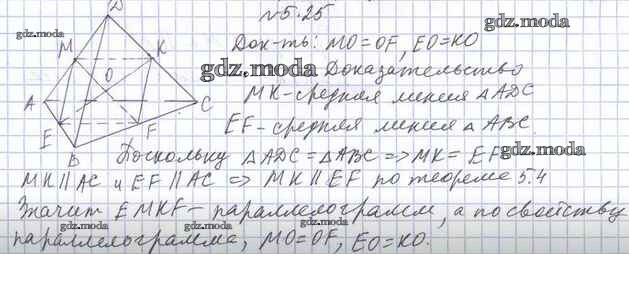 №5.25
D
gdz.moda
Док-ть: MO=OF, EO=KO
M K
O
gdz.moda Доказательство
gdz.moda
A C
MK-средняя линия △ADC
E F
EF-средняя линия △ABC
B
Поскольку △ADC=△ABC=>MK=EF
gdz.moda
MK∥AC и EF∥AC => MK∥EF по теореме 5.4
gdz.moda gdz.moda
Значит EMKF- параллелограмм, а по свойству
gdz.moda gdz.moda
параллелограмма, MO=OF, EO=KO.
gdz.moda gdz.moda